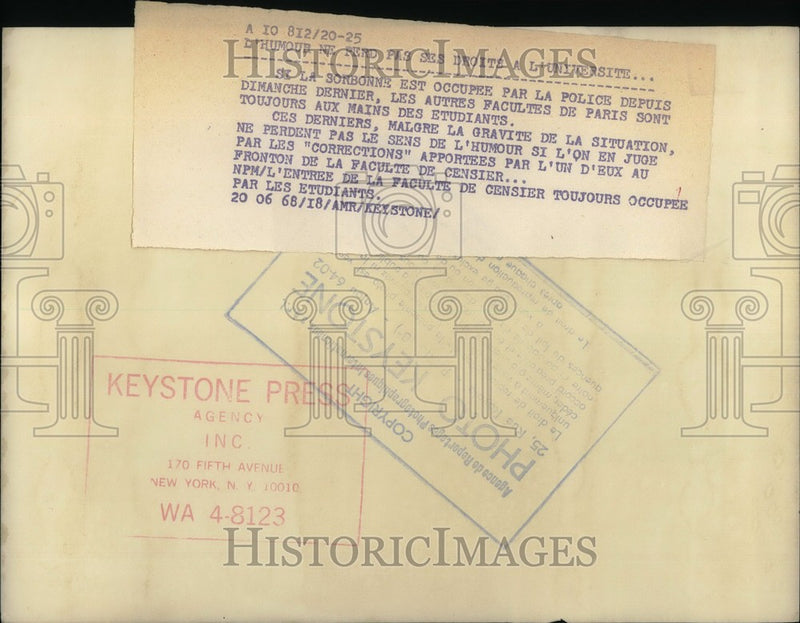 A IO 812/20-25
L'HUMOUR NE PERD PAS SES DROITS A L'UNIVERSITE...
SI LA SORBONNE EST OCCUPEE PAR LA POLICE DEPUIS
DIMANCHE DERNIER, LES AUTRES FACULTES DE PARIS SONT
TOUJOURS AUX MAINS DES ETUDIANTS.
CES DERNIERS, MALGRE LA GRAVITE DE LA SITUATION,
NE PERDENT PAS LE SENS DE L'HUMOUR SI L'ON EN JUGE
PAR LES "CORRECTIONS" APPORTEES PAR L'UN D'EUX AU
FRONTON DE LA FACULTE DE CENSIER...
NPM/L'ENTREE DE LA FACULTE DE CENSIER TOUJOURS OCCUPEE
PAR LES ETUDIANTS.
20 06 68/I8/AMR/KEYSTONE/
KEYSTONE PRESS
AGENCY
INC.
170 FIFTH AVENUE
NEW YORK, N. Y. 10010
WA 4-8123
COPYRIGHT
Agence de Reportages Photographiques
PHOTO KEYSTONE
25, Rue
64-02
HISTORICIMAGES
HISTORICIMAGES